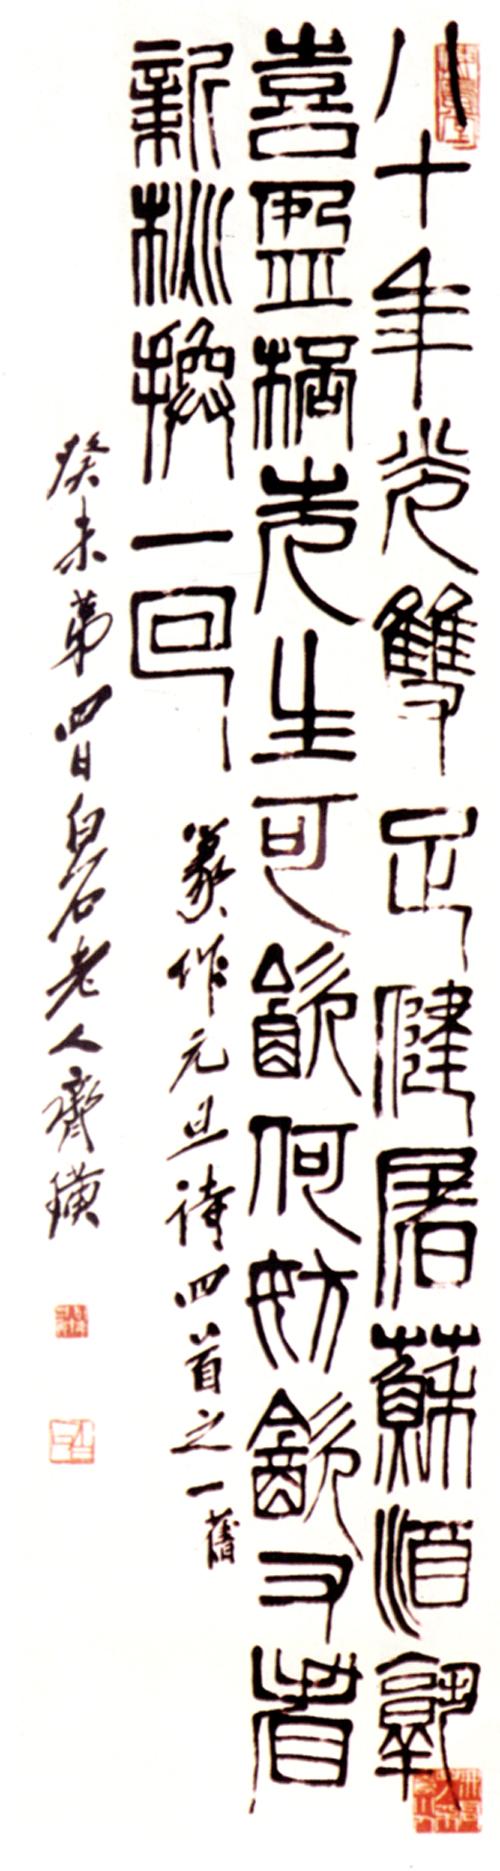 八十年光雙足健屠蘇酒孰
喜盈桮先生可飲何妨飲又看
新桃換一回
篆作元旦詩四首之一舊
癸未第四日白石老人齊璜